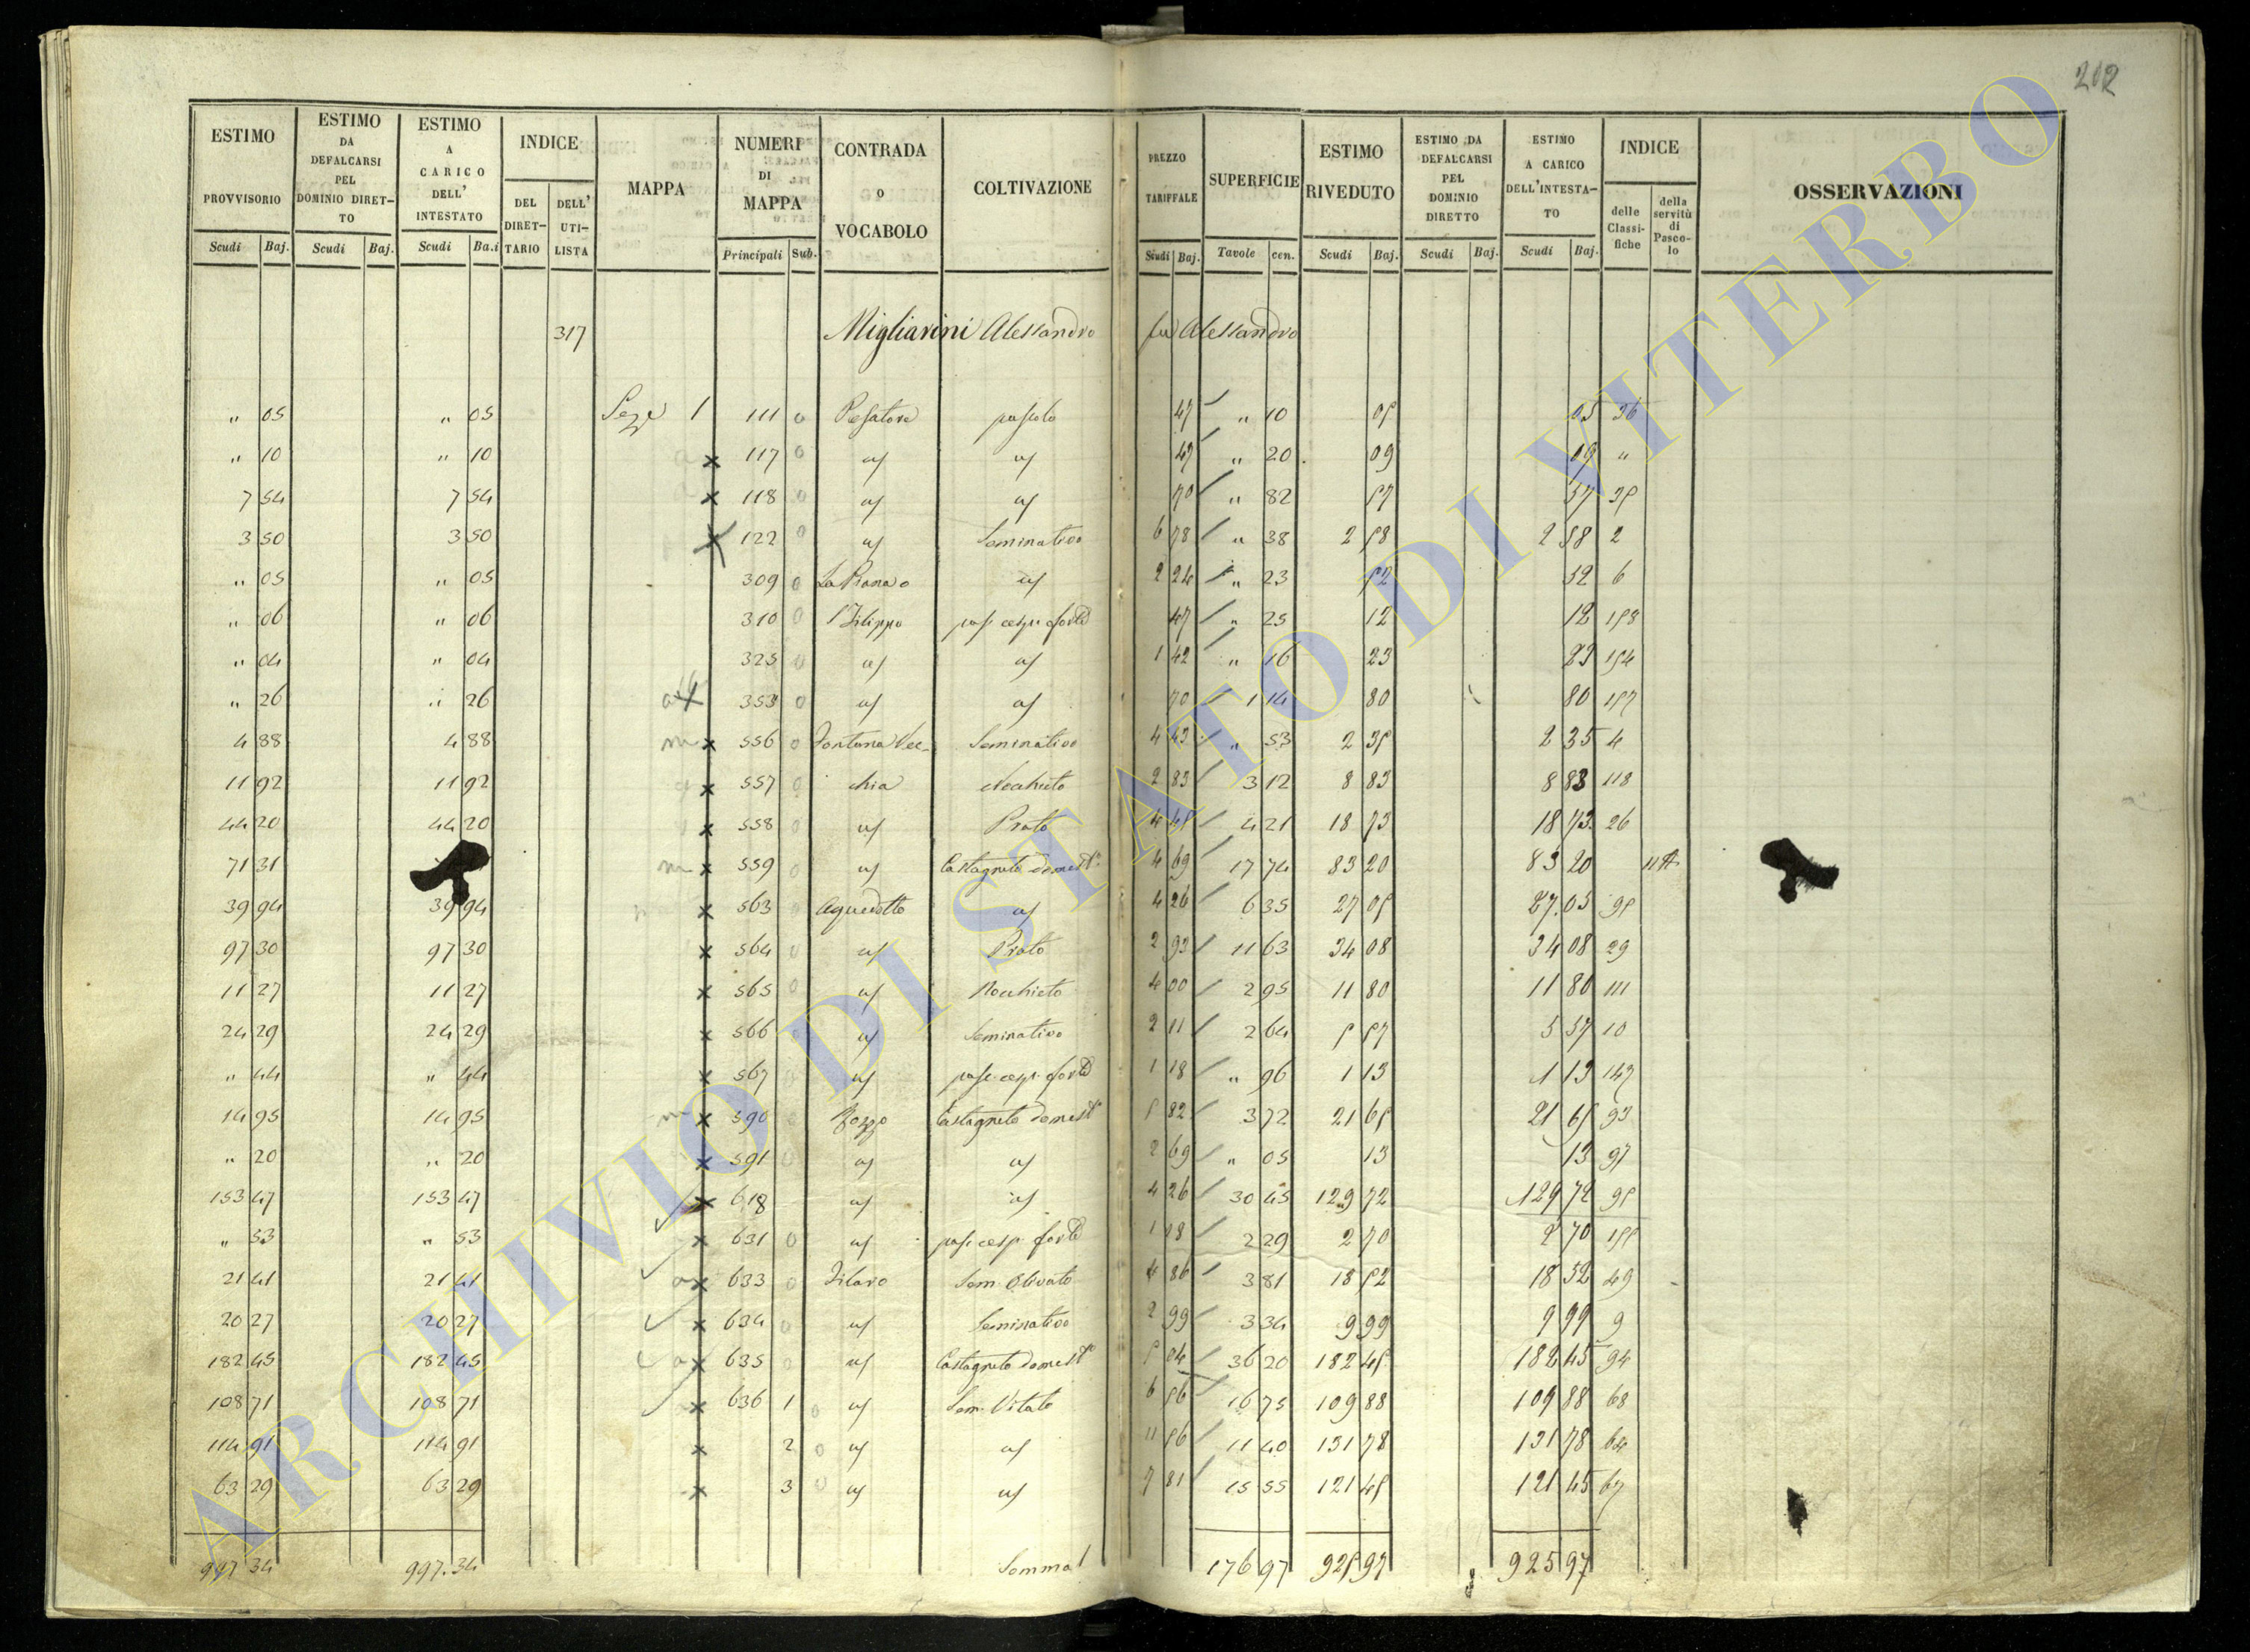 202
ESTIMO PROVVISORIO Scudi Baj. | ESTIMO DA DEFALCARSI PEL DOMINIO DIRET-TO Scudi Baj. | ESTIMO A CARICO DELL' INTESTATO Scudi Ba.i | INDICE DEL DIRET-TARIO DELL' UTI-LISTA | MAPPA | NUMERI DI MAPPA Principali Sub. | CONTRADA o VOCABOLO | COLTIVAZIONE | PREZZO TARIFFALE Scudi Baj. | SUPERFICIE Tavole cen. | ESTIMO RIVEDUTO Scudi Baj. | ESTIMO DA DEFALCARSI PEL DOMINIO DIRETTO Scudi Baj. | ESTIMO A CARICO DELL'INTESTA-TO Scudi Baj. | INDICE delle Classi-fiche della servitù di Pasco-lo | OSSERVAZIONI
317 Migliarini Alessandro fu Alessandro
" 05 " 05 1 111 0 pascolo 47 " 10 05 05 36
" 10 " 10 x 117 0 47 " 20 09 09 "
7 54 7 54 x 118 0 70 " 82 57 57 35
3 50 3 50 x 122 0 Seminativo 6 78 " 38 2 58 2 58 2
" 05 " 05 309 0 2 24 " 23 52 52 6
" 06 " 06 310 0 S Filippo pas. cesp. forte 47 " 25 12 12 158
" 04 " 04 325 0 1 42 " 16 23 23 154
" 26 " 26 353 0 70 1 14 80 80 157
4 88 4 88 m x 556 0 Fontana Vec- Seminativo 4 43 " 53 2 35 2 35 4
11 92 11 92 x 557 0 chia Nochieto 2 83 3 12 8 83 8 83 118
44 20 44 20 x 558 0 Prato 4 45 4 21 18 73 18 73 26
71 31 m x 559 0 Castagneto domest. 4 69 17 74 83 20 83 20
39 94 39 94 x 563 Aquedotto 4 26 6 35 27 05 27.05 95
97 30 97 30 x 564 0 Prato 2 93 11 63 34 08 34 08 29
11 27 11 27 x 565 0 Nochieto 4 00 2 95 11 80 11 80 111
24 29 24 29 x 566 Seminativo 2 11 2 64 5 57 5 57 10
" 44 " 44 x 567 pas. cesp. forte 1 18 " 96 1 13 1 13 147
14 95 14 95 m x 590 Pozzo Castagneto domest. 5 82 3 72 21 65 21 65 93
" 20 " 20 x 591 2 69 " 05 13 13 97
153 47 153 47 x 618 4 26 30 45 129 72 129 72 95
" 53 " 53 x 631 0 pas. cesp. forte 1 18 2 29 2 70 2 70 155
21 41 21 41 a x 633 0 Filaro Sem. Olivato 4 86 3 81 18 52 18 52 49
20 27 20 27 x 634 0 Seminativo 2 99 3 34 9 99 9 99 9
182 45 182 45 a x 635 0 Castagneto domest. 5 04 36 20 182 45 182 45 94
108 71 108 71 x 636 1 0 Sem. Vitato 6 56 16 75 109 88 109 88 68
114 91 114 91 x 2 0 11 56 11 40 131 78 131 78 64
63 29 63 29 x 3 0 7 81 15 55 121 45 121 45 67
997 34 997.34 Somma 176 97 925 97 925 97
ARCHIVIO DI STATO DI VITERBO